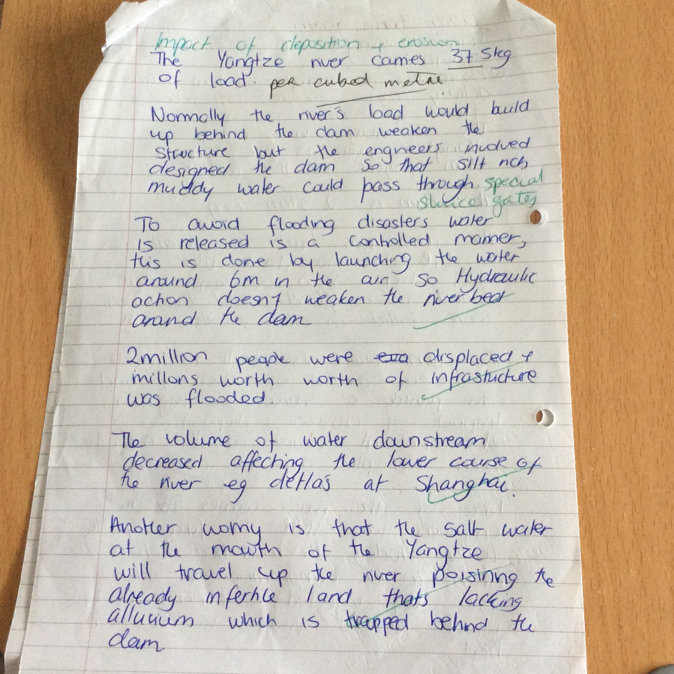 Impact of deposition + erosion
The Yangtze river carries 37.5kg
of load per cubed metre
Normally the river's load would build
up behind the dam weaken the
structure but the engineers involved
designed the dam so that silt rich
muddy water could pass through special
sluice gates
To avoid flooding disasters water
is released is a controlled manner,
this is done by launching the water
around 6m in the air so Hydraulic
action doesn't weaken the river bed
around the dam
2million people were displaced +
millons worth worth of infrastructure
was flooded.
The volume of water downstream
decreased affecting the lower course of
the river eg deltas at Shanghai.
Another worry is that the salt water
at the mouth of the Yangtze
will travel up the river poisining the
already infertile land thats lacking
alluvium which is trapped behind the
dam